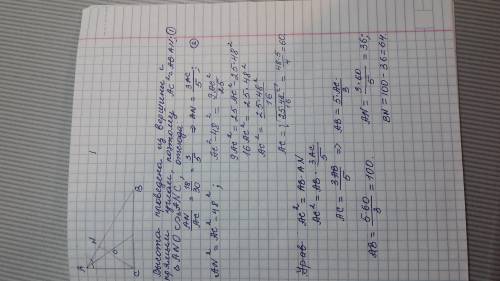 A
N
B
O
C
Высота проведена из вершины с
прямым углом, поэтому AC² = AB·AN. ①
△ANO ∾ △ANC, отсюда
AN/AC = 18/30 = 3/5 ⇒ AN = 3AC/5; ②
AN² = AC² - 48²; AC² - 48² = 9AC²/25
9AC² = 25AC² - 25·48²
16AC² = 25·48²
AC² = 25·48²/16
AC = √25·48²/16 = 48·5/4 = 60.
AC² = AB·AN
AC² = AB·3AC/5
AC = 3AB/5 ⇒ AB = 5·AC/3
AB = 5·60/3 = 100. AN = 3·60/5 = 36;
BN = 100-36 = 64.